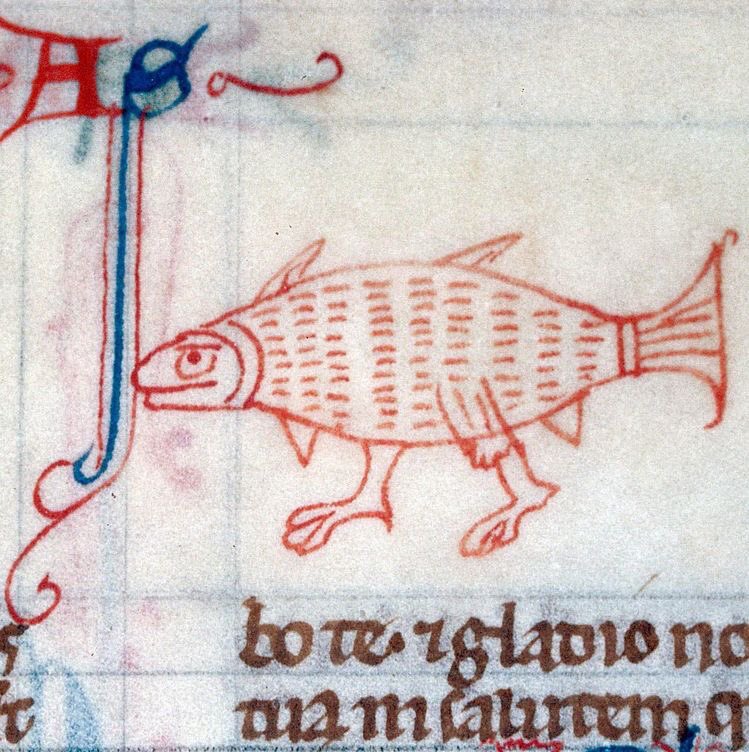 A S
s bo te · ⁊ gladio no
ft tua in salutem q